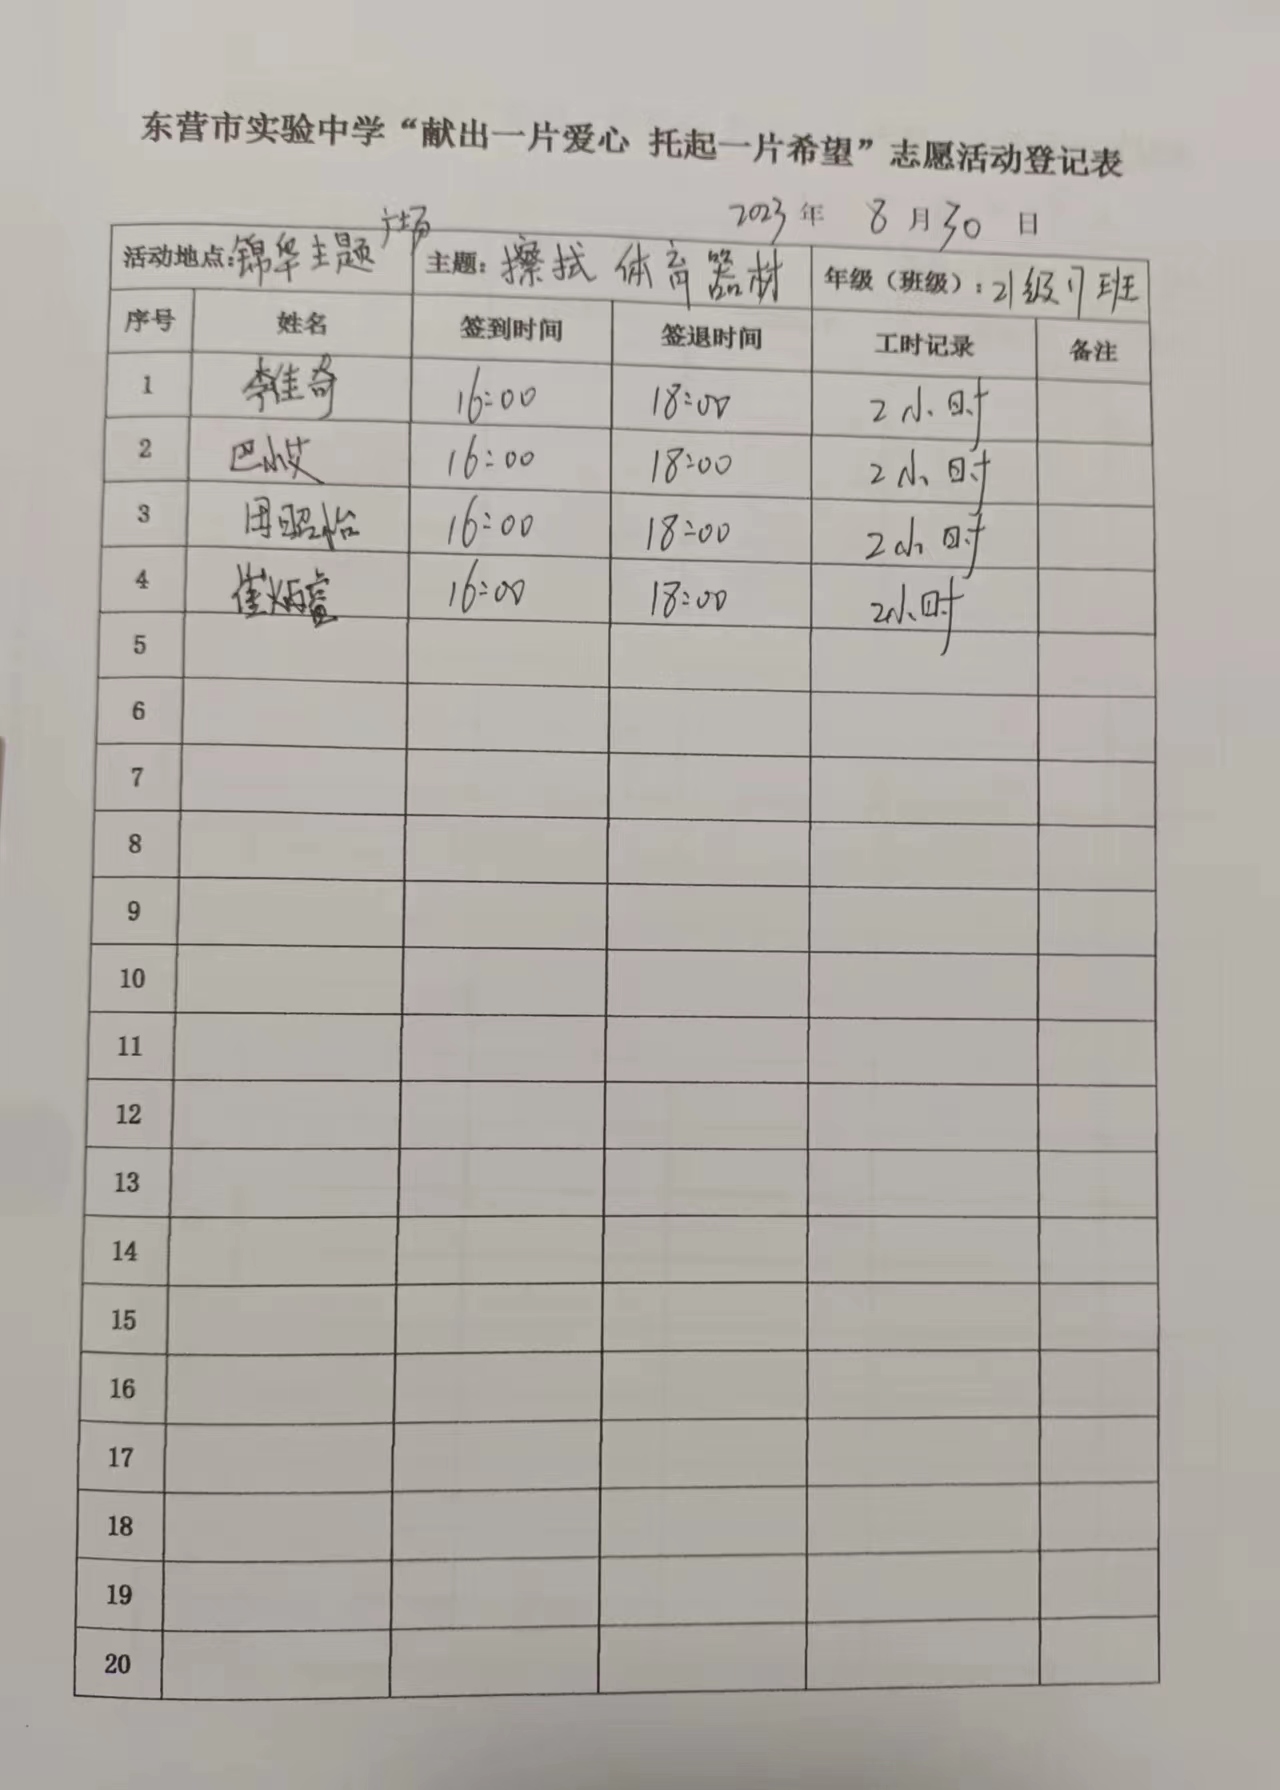 东营市实验中学“献出一片爱心 托起一片希望”志愿活动登记表
2023年 8月30日
活动地点:锦华主题广场 主题:擦拭体育器材 年级(班级):21级17班
序号 姓名 签到时间 签退时间 工时记录 备注
1 李佳奇 16:00 18:00 2小时
2 巴小艾 16:00 18:00 2小时
3 田昭怡 16:00 18:00 2小时
4 崔炳睿 16:00 18:00 2小时
5
6
7
8
9
10
11
12
13
14
15
16
17
18
19
20